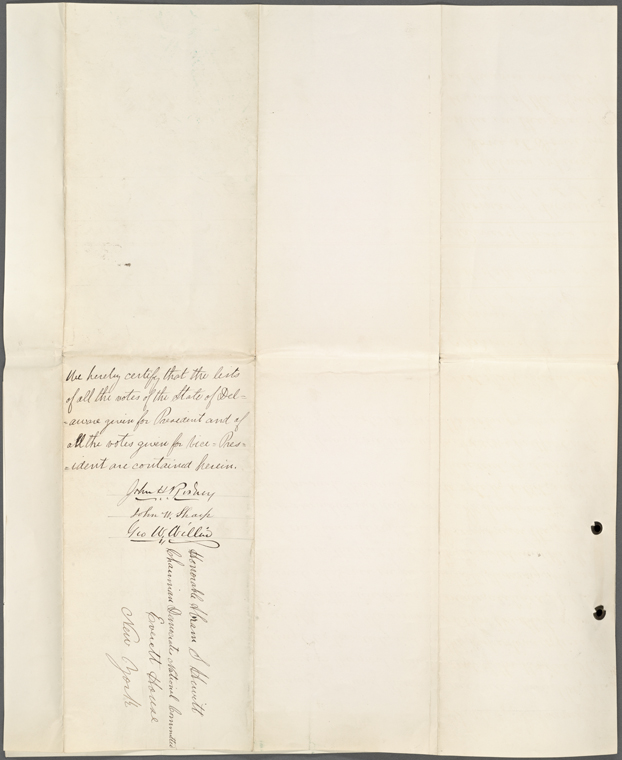 We hereby certify, that the lists
of all the votes of the State of Del=
=aware given for President and of
all the votes given for Vice=Pres=
=ident are contained herein.
John H. Rodney
John W. Sharp
Geo W. Willin
Honorable Abram S Hewitt
Chairman Democratic National Committee
Everett House
New York